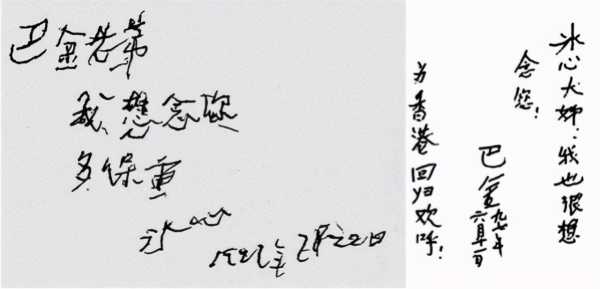 巴金老弟
我想念你
多保重
冰心
冰心大姊:我也很想
念您!
巴金
九七年
六月
为香港回归欢呼!